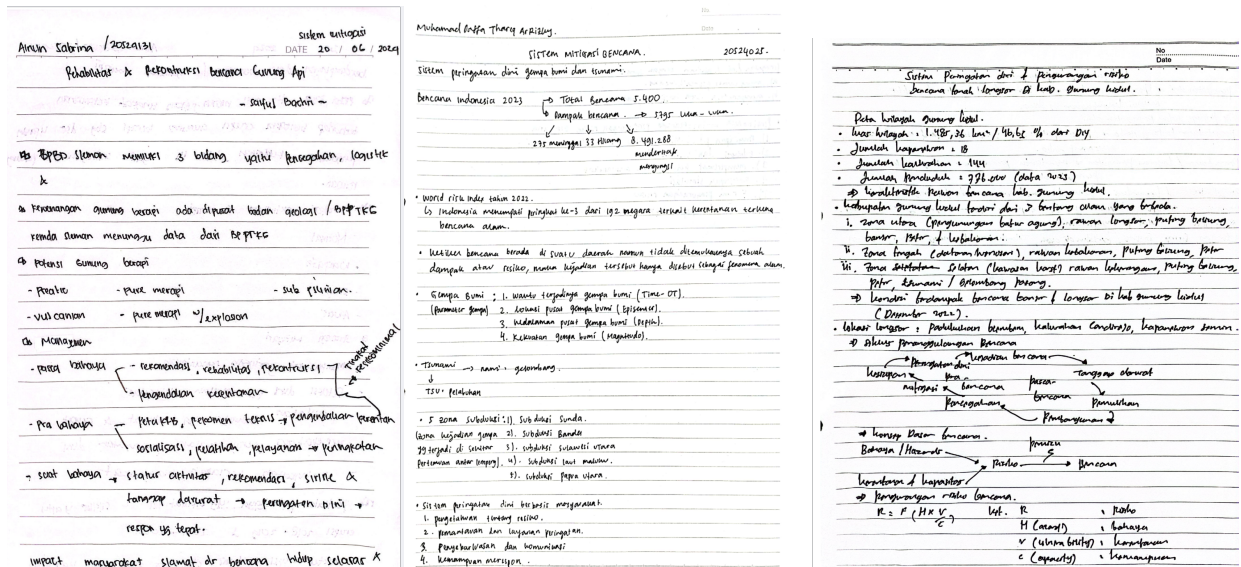 sistem mitigasi
Ainun Sabrina / 20524131
DATE 20 / 06 / 2024
Rehabilitas & Rekontruksi bencana Gunung Api
- Saiful Bachri ~
BPBD Sleman memiliki 3 bidang yaitu Pencegahan, logistik
&
kewenangan gunung berapi ada dipusat badan geologi / BPPTKG
Pemda sleman menunggu data dari BPPTKG
Potensi Gunung berapi
- Preatic - pure merapi - sub plinian.
- vulcanian - pure merapi w/explosion
Manajmen
- pasca bahaya - rekomendasi, rehabilitas, rekontruksi
- Pengendalian kerentanan
- Pra bahaya Peta KRB, rekomen teknis → pengendalian kerentan
sosialisasi, pelatihan, pelayanan → peningkatan
- saat bahaya → status aktivitas, rekomendasi, sirine &
tanggap darurat → peringatan dini →
respon yg tepat.
impact masyarakat slamat dr bencana hidup selaras &
Muhamad Daffa Thariq ArRizky.
SISTEM MITIGASI BENCANA. 20524025.
Sistem peringatan dini gempa bumi dan tsunami.
Bencana Indonesia 2023 → Total Bencana 5.400
→ Dampak bencana. → 5795 luka - luka.
275 meninggal 33 Hilang 8.491.288
menderita &
mengungsi
• World risk index tahun 2022.
↳ Indonesia menempati peringkat ke-3 dari 192 negara terkait kerentanan terkena
bencana alam.
• Ketika bencana berada di suatu daerah namun tidak ditemukannya sebuah
dampak atau resiko, maka kejadian tersebut hanya disebut sebagai fenomena alam.
• Gempa Bumi : 1. Waktu terjadinya gempa bumi (Time-OT).
(Parameter gempa) 2. Lokasi pusat gempa bumi (Episenter).
3. Kedalaman pusat gempa bumi (Depth).
4. Kekuatan gempa bumi (Magnitudo).
• Tsunami → nami : gelombang.
↓
TSU : Pelabuhan
• 5 zona subduksi : 1). Subduksi Sunda.
(zona kejadian gempa 2). Subduksi Banda
yg terjadi di sekitar 3). Subduksi sulawesi utara
Pertemuan antar lempeng). 4). Subduksi laut maluku.
5). Subduksi Papua utara.
• Sistem peringatan dini berbasis masyarakat.
1. pengetahuan tentang resiko.
2. pemantauan dan layanan peringatan.
3. Penyebarluasan dan komunikasi
4. Kemampuan merespon.
No
Date
Sistem Peringatan dini & pengurangan risiko
bencana tanah longsor Di kab. gunung kidul.
Peta wilayah gunung kidul.
• luas wilayah : 1.485,36 km² / 46,63 % dari DIY
• Jumlah kapanewon : 18
• Jumlah kalurahan : 144
• Jumlah Penduduk : 776.000 (data 2023)
⇒ karakteristik Rawan bencana kab. gunung kidul.
• kabupaten gunung kidul terdiri dari 3 bentang alam yang berbeda.
i. zona utara (pegunungan batur agung), rawan longsor, puting beliung,
banjir, petir, & kebakaran.
ii. Zona tengah (dataran/wonosari), rawan kebakaran, puting beliung, petir
iii. Zona selatan (kawasan karst) rawan kekeringan, puting beliung,
petir, tsunami / gelombang pasang.
⇒ kondisi terdampak bencana banjir & longsor Di kab gunung kidul
(Desember 2022).
• lokasi longsor : Padukuhan , kalurahan Candirejo, kapanewon semin.
⇒ Siklus Penanggulangan Bencana
Peringatan dini kejadian bencana
kesiapan Tanggap darurat
pra- pasca-
mitigasi bencana bencana Pemulihan
Pencegahan Pembangunan
⇒ konsep Dasar bencana.
Bahaya / Hazards pemicu
Risiko → Bencana
kerentanan & kapasitas
⇒ pengurangan risiko bencana.
R = F (H x V/C) ket. R : Risiko
H (hazard) : bahaya
V (vulnerability) : kerentanan
C (capacity) : kemampuan